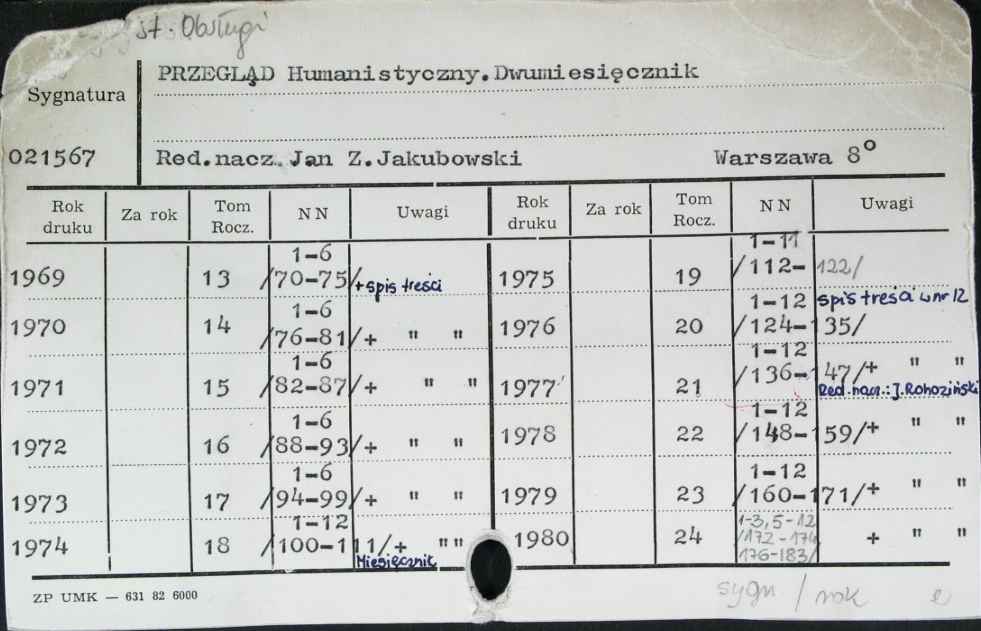 st. Obsługi
PRZEGLĄD Humanistyczny.Dwumiesięcznik
Sygnatura
021567 Red.nacz. Jan Z.Jakubowski Warszawa 8°
Rok druku Za rok Tom Rocz. NN Uwagi Rok druku Za rok Tom Rocz. NN Uwagi
1969 13 1-6 /70-75/ +spis treści 1975 19 1-11 /112-122/
1970 14 1-6 /76-81/+ " " 1976 20 1-12 /124-135/ spis treści w nr 12
1971 15 1-6 /82-87/+ " " 1977 21 1-12 /136-147/+ " "
Red. nacz.: J. Rohoziński
1972 16 1-6 /88-93/+ " " 1978 22 1-12 /148-159/+ " "
1973 17 1-6 /94-99/+ " " 1979 23 1-12 /160-171/+ " "
1974 18 1-12 /100-111/+ " " Miesięcznik 1980 24 1-3, 5-12 /172-174 176-183/ + " "
ZP UMK — 631 82 6000
sygn / rok e